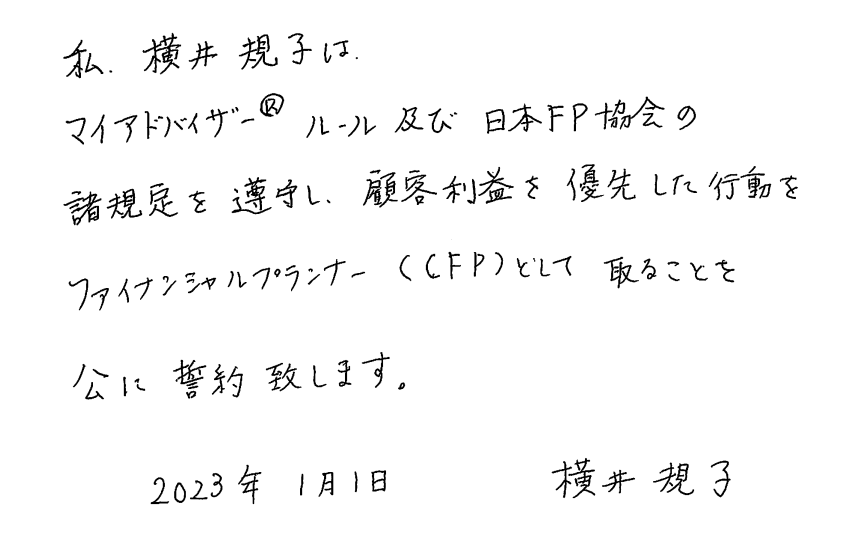 私、横井規子は、
マイアドバイザー®ルール及び日本FP協会の
諸規定を遵守し、顧客利益を優先した行動を
ファイナンシャルプランナー(CFP)として取ることを
公に誓約致します。
2023年1月1日 横井規子